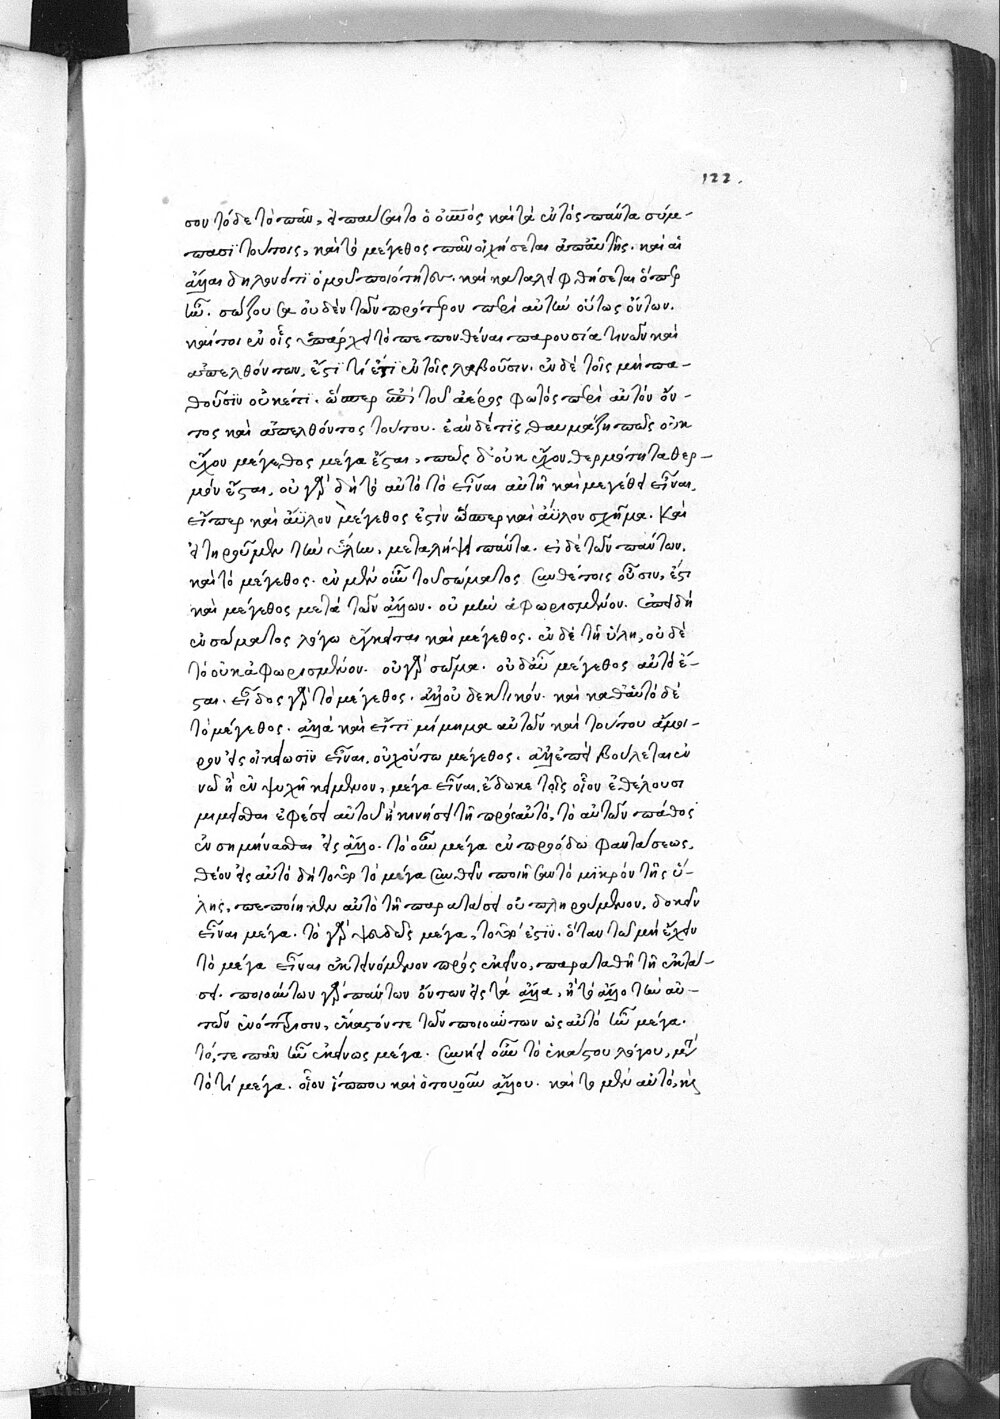 122.
σου τόδε τὸ πᾶν, ἐπαύσατο ὁ οὐρανός καὶ τὰ ἐντὸς πάντα σύμ-
πασι τούτοις, καὶ τὸ μέγεθος πᾶν οἰχήσεται ἀπ' αὐτῆς. καὶ αἱ
ἄλλαι δηλονότι ὁμοῦ ποιότητες. καὶ καταλειφθήσεται ὅπερ
ἦν. σώζουσα οὐδὲν τῶν πρότερον περὶ αὐτὴν οὕτως ὄντων.
καίτοι ἐν οἷς ὑπάρχει τὸ πεπονθέναι παρουσία τινῶν καὶ
ἀπελθόντων, ἔστι τι ἔτι ἐν τοῖς λαβοῦσιν. ἐν δὲ τοῖς μὴ πα-
θοῦσιν οὐκέτι. ὥσπερ ἐπὶ τοῦ ἀέρος φωτὸς περὶ αὐτὸν ὄν-
τος καὶ ἀπελθόντος τούτου. ἐὰν δέ τις θαυμάζῃ πῶς οὐκ
ἔχον μέγεθος μέγα ἔσται, πῶς δ' οὐκ ἔχον θερμότητα θερ-
μὸν ἔσται, οὐ γὰρ δὴ τὸ αὐτὸ τὸ εἶναι αὐτῇ καὶ μεγέθει εἶναι.
εἴπερ καὶ ἄϋλον μέγεθος ἐστὶν ὥσπερ καὶ ἄϋλον σχῆμα. Καὶ
εἰ τηροῦμεν τὴν ὕλην, μεταλήψει πάντα. εἰ δὲ τῶν πάντων,
καὶ τὸ μέγεθος. ἐν μὲν οὖν τοῖς σώμασι συνθέτοις οὖσιν, ἔστι
καὶ μέγεθος μετὰ τῶν ἄλλων. οὐ μὴν ἀφωρισμένον. ἐπειδὴ
ἐν σώματος λόγω ἔγκειται καὶ μέγεθος. ἐν δὲ τῇ ὕλη, οὐδὲ
τὸ οὐκ ἀφωρισμένον. οὐ γὰρ σῶμα. οὐδ' αὖ μέγεθος αὐτὸ ἔ-
σται. εἶδος γὰρ τὸ μέγεθος. ἀλλ' οὐ δεκτικόν. καὶ καθ' αὑτὸ δὲ
τὸ μέγεθος. ἀλλὰ καὶ εἴ τι μίμημα αὐτῶν καὶ τούτου ἄμοι-
ρον εἰς οἰκείωσιν εἶναι, οὐχ οὕτω μέγεθος. ἀλλ' ἐπεὶ βούλεται ἐν
νῶ ἢ ἐν ψυχῆ κείμενον, μέγα εἶναι, ἔδωκε τοῖς οἷον ἐθέλουσι
μιμεῖσθαι ἐφέσει αὐτοῦ ἢ κινήσει τῇ πρὸς αὐτό, τὸ αὐτῶν πάθος
ἐνσημήνασθαι εἰς ἄλλο. τὸ οὖν μέγα ἐν προόδω φαντάσεως,
θέον εἰς αὐτὸ δὴ τοῦτο τὸ μέγα συνθεῖν ποιῆσαν τὸ μικρὸν τῆς ὕ-
λης, πεποίηκεν αὐτὸ τῇ παρατάσει οὐ πληρούμενον, δοκεῖν
εἶναι μέγα. τὸ γὰρ ψευδῶς μέγα, τοῦτό ἐστιν. ὅταν τῶ μὴ ἔχειν
τὸ μέγα εἶναι ἐκτεινόμενον πρὸς ἐκεῖνο, παραταθῇ τῇ ἐκτά-
σει. ποιούντων γὰρ πάντων ὄντων εἰς τὰ ἄλλα, ἢ τὸ ἄλλο τὴν αὐ-
τῶν ἐνόπτρισιν, ἕκαστόν τε τῶν ποιούντων ὡς αὐτὸ ἦν μέγα.
τό, τε πᾶν ἦν ἐκείνως μέγα. συνῄει οὖν τὸ ἑκάστου λόγου, μετὰ
τό τι μέγα. οἷον ἵππου καὶ ὁτουοῦν ἄλλου. καὶ τὸ μέγα αὐτό, κỳς